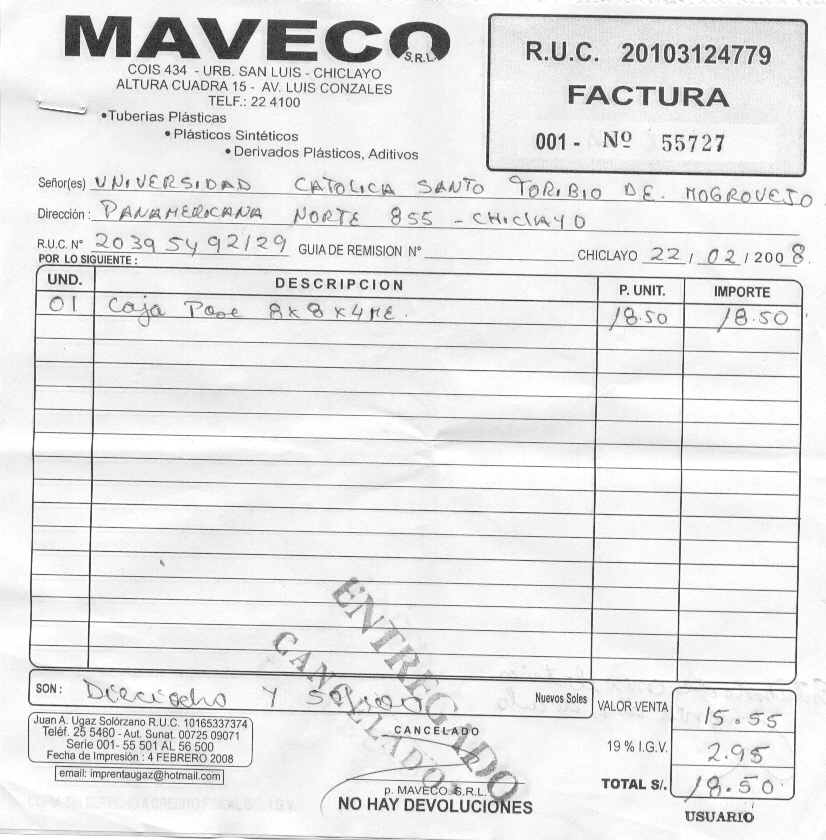 MAVECO S.R.L.
COIS 434 - URB. SAN LUIS - CHICLAYO
ALTURA CUADRA 15 - AV. LUIS CONZALES
TELF.: 22 4100
•Tuberías Plásticas
•Plásticos Sintéticos
•Derivados Plásticos, Aditivos
R.U.C. 20103124779
FACTURA
001 - Nº 55727
Señor(es) UNIVERSIDAD CATOLICA SANTO TORIBIO DE. MOGROVEJO
Dirección : PANAMERICANA NORTE 855 - CHICLAYO
R.U.C. N° 20395492129 GUIA DE REMISION N° CHICLAYO 22/02/2008.
POR LO SIGUIENTE :
UND. DESCRIPCION P. UNIT. IMPORTE
01 Caja Pase 8x8x4 18.50 18.50
ENTREGADO
CANCELADO
SON : Dieciocho y Nuevos Soles
VALOR VENTA 15.55
19 % I.G.V. 2.95
TOTAL S/. 18.50
USUARIO
Juan A. Ugaz Solórzano R.U.C. 10165337374
Teléf. 25 5460 - Aut. Sunat. 00725 09071
Serie 001- 55 501 AL 56 500
Fecha de Impresión : 4 FEBRERO 2008
email: imprentaugaz@hotmail.com
CANCELADO
p. MAVECO. S.R.L.
NO HAY DEVOLUCIONES
COPIA SIN DERECHO A CREDITO FISCAL DEL I.G.V.